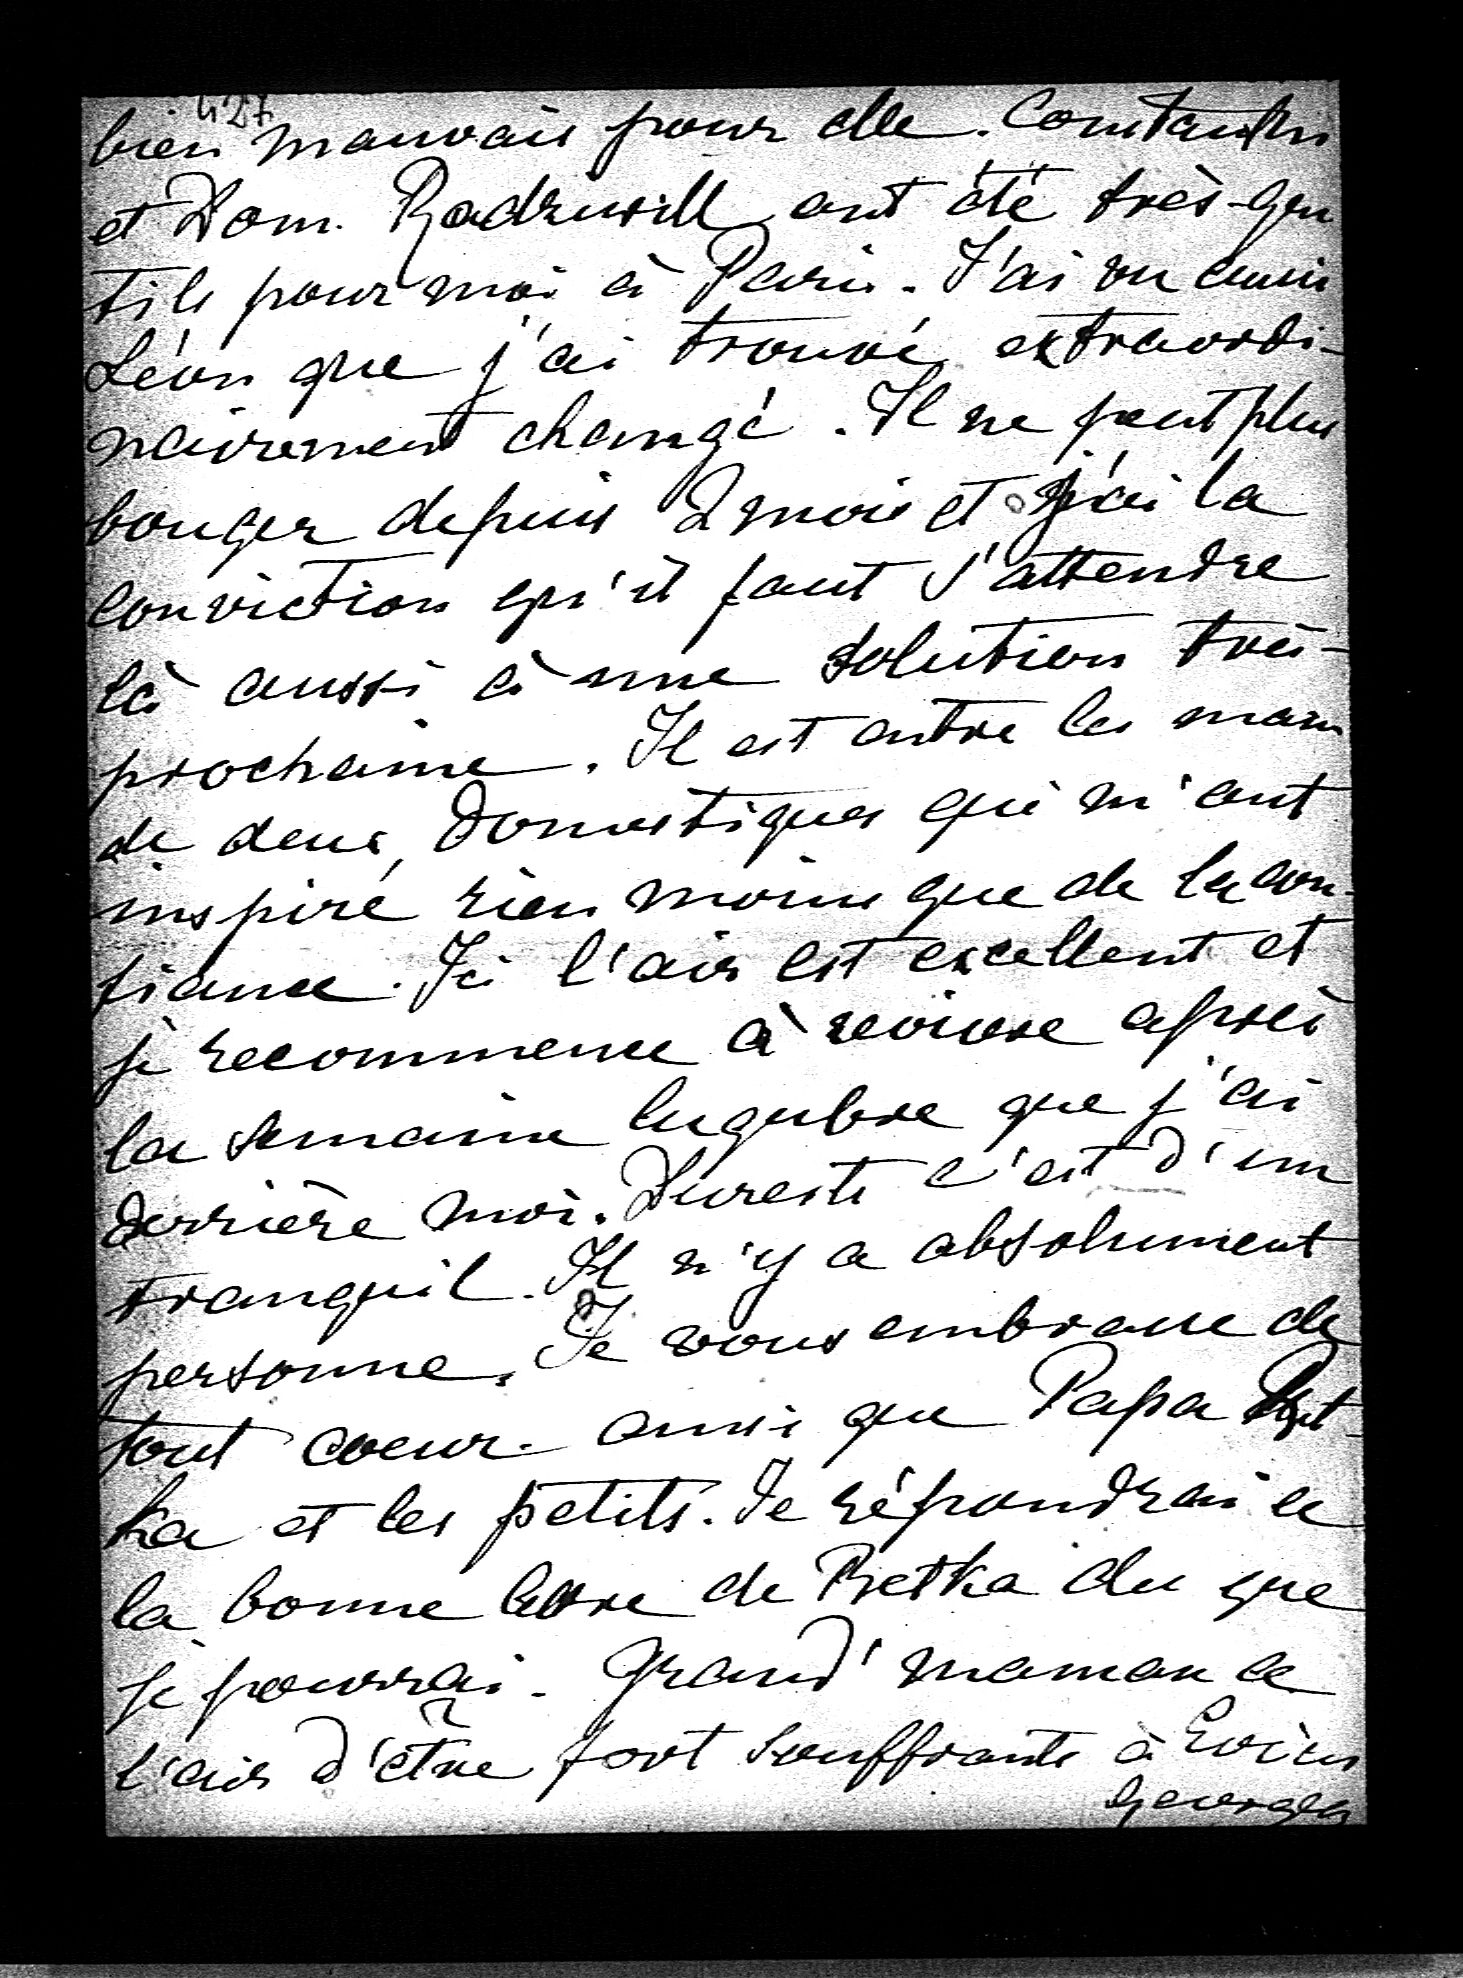 427
bien mauvais pour elle. Constantin
et Dom. Radziwill ont été très-gen
tils pour moi à Paris. J'ai vu aussi
Léon que j'ai trouvé extraordi-
nairement changé. Il ne peut plus
bouger depuis 2 mois et j'ai la
conviction qu'il faut s'attendre
là aussi à une solution très-
prochaine. Il est entre les mains
de deux domestiques qui m'ont
inspiré rien moins que de la con-
fiance. Ici l'air est excellent et
je recommence à revivre après
la semaine lugubre que j'ai
derrière moi. Dureste c'est d'un
tranquil. Il n'y a absolument
personne. Je vous embrasse de
tout coeur ainsi que Papa Bet-
ka et les petits. Je répondrai à
la bonne lettre de Betka dès que
je pourrai. Grand'maman a
l'air d'être fort souffrante à Evian
Georges